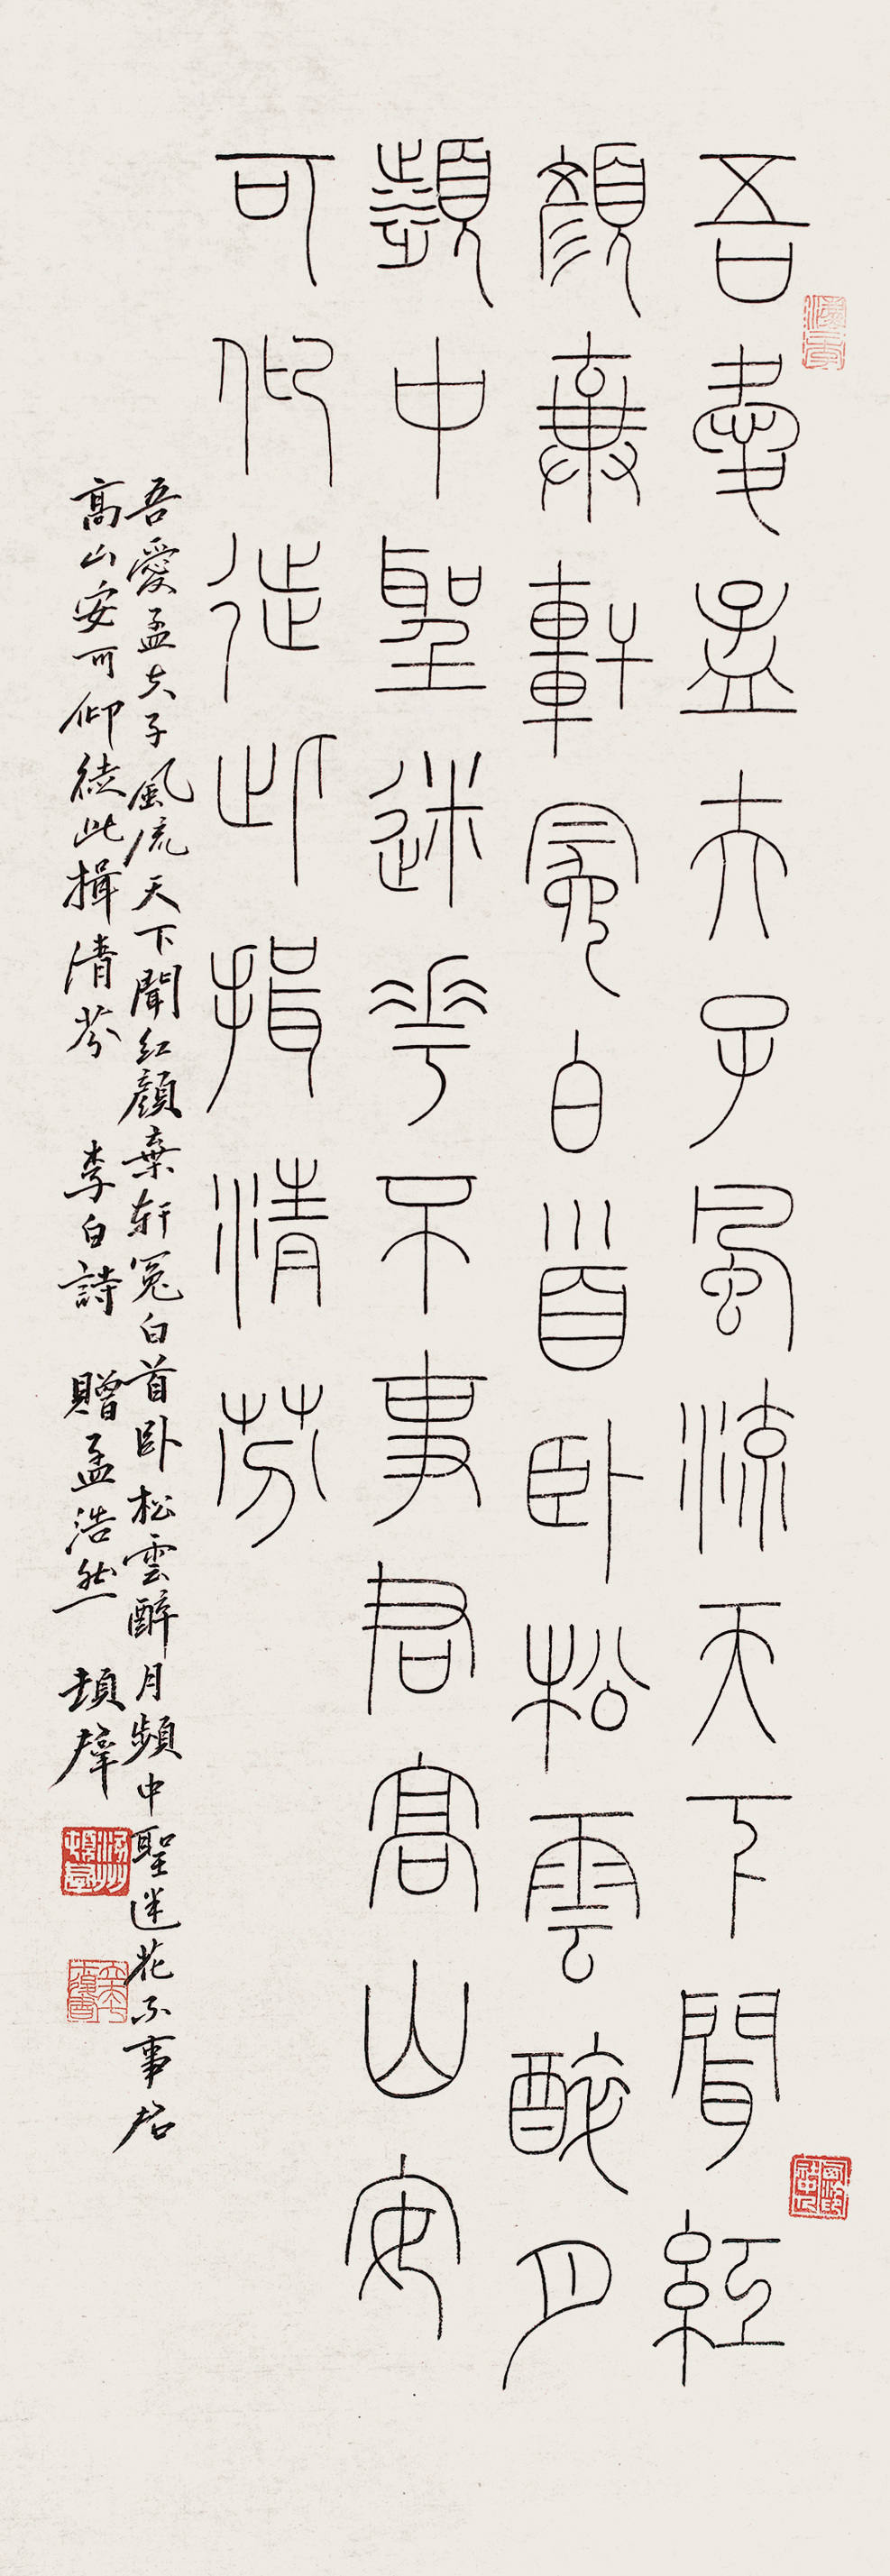 吾愛孟夫子風流天下聞紅
顏棄軒冕白首臥松雲醉月
頻中聖迷花不事君高山安
可仰徒此揖清芬
吾愛孟夫子風流天下聞紅顏棄軒冕白首卧松雲醉月頻中聖迷花不事君
高山安可仰徒此揖清芬 李白詩 贈孟浩然